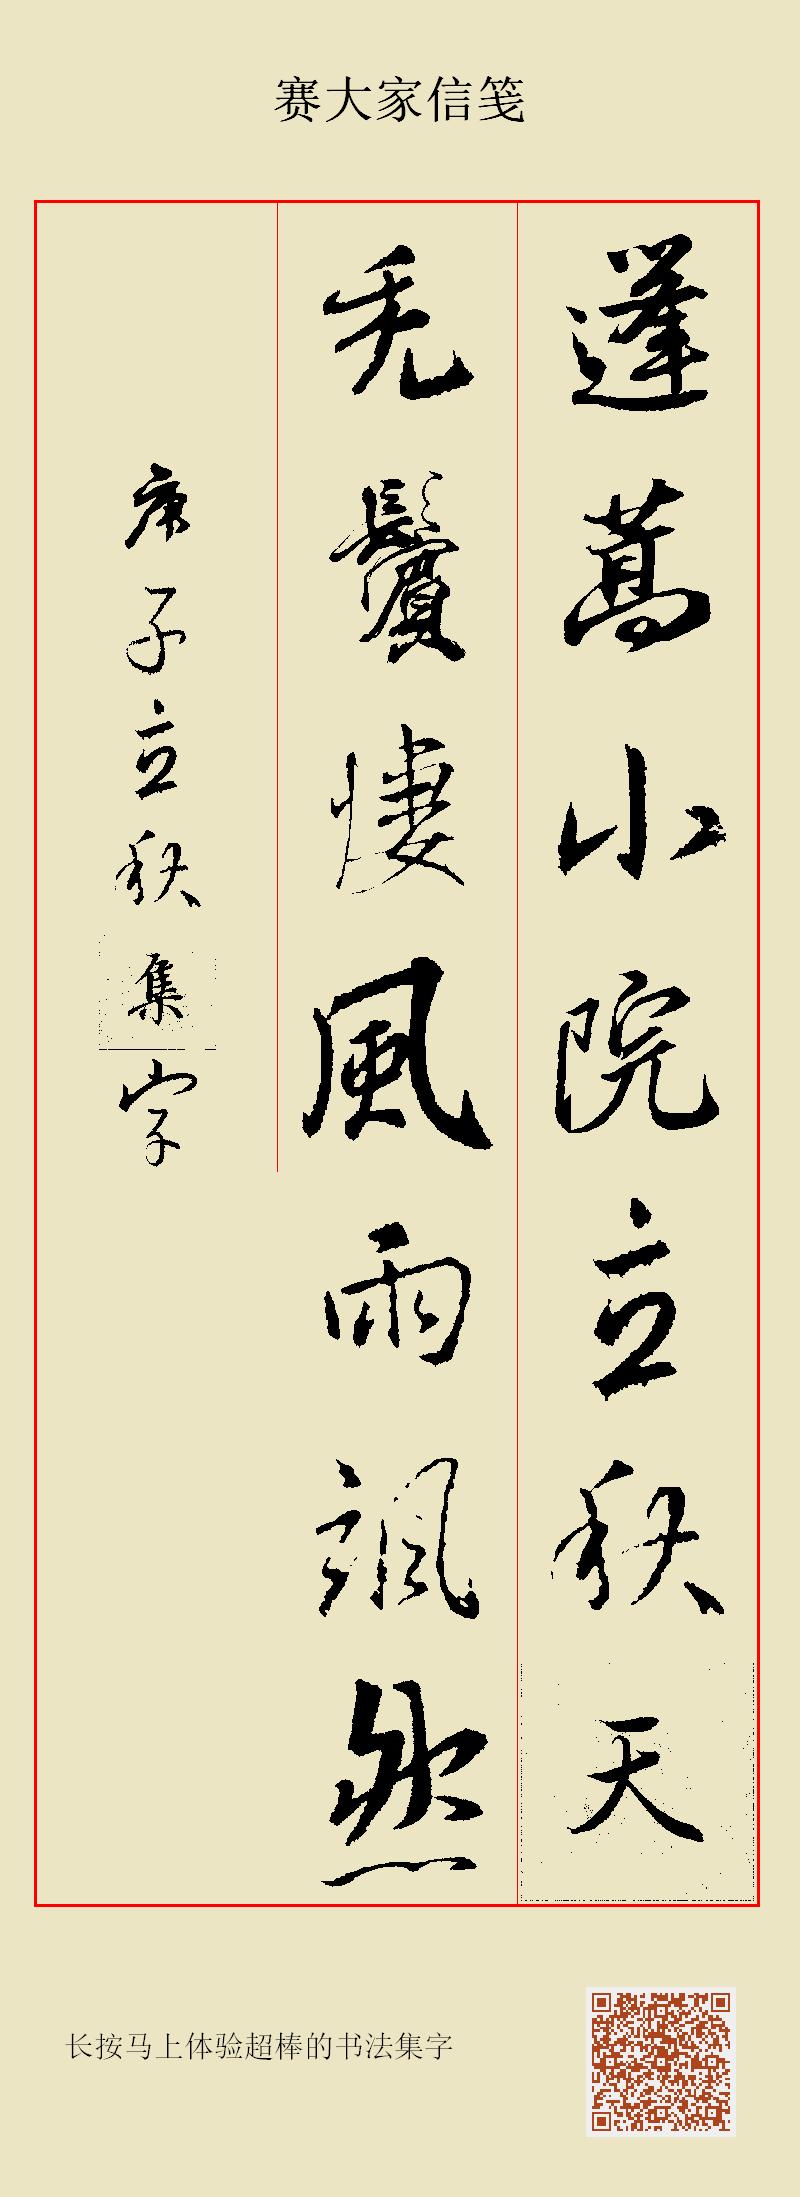 赛大家信笺
蓬蒿小院立秋天
禿鬢悽風雨颯然
庚子立秋集字
长按马上体验超棒的书法集字